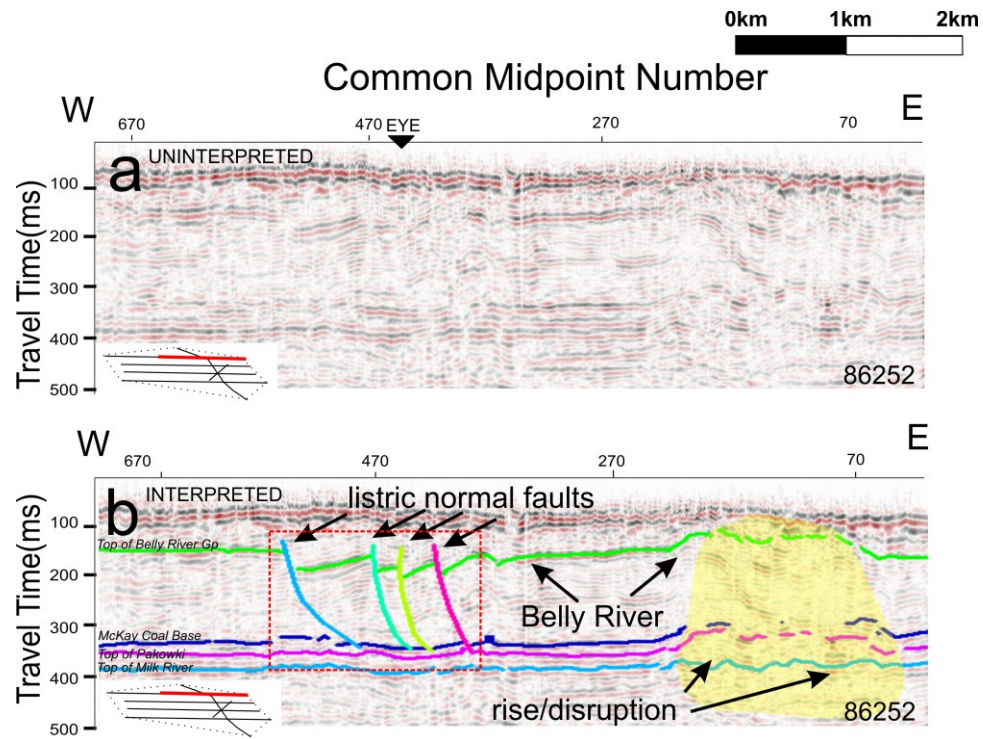 0km 1km 2km
Common Midpoint Number
W E
670 470 EYE 270 70
a UNINTERPRETED
Travel Time(ms)
100
200
300
400
500
86252
W E
670 470 270 70
b INTERPRETED
listric normal faults
Travel Time(ms)
100
Top of Belly River Gp
200
Belly River
300
McKay Coal Base
Top of Pakowki
Top of Milk River
400
rise/disruption
86252
500